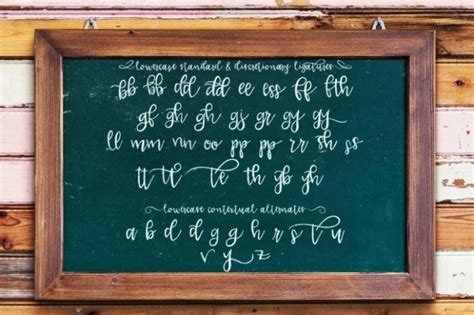 lowercase standard & discretionary ligatures
bb bb dd dd ee ess ff fth
gf gh gh gj gr gy gy
ll mm nn oo pp pp rr sh ss
tt tl te th gb gh
lowercase contextual alternates
a b d d g g h r s t u
v y z